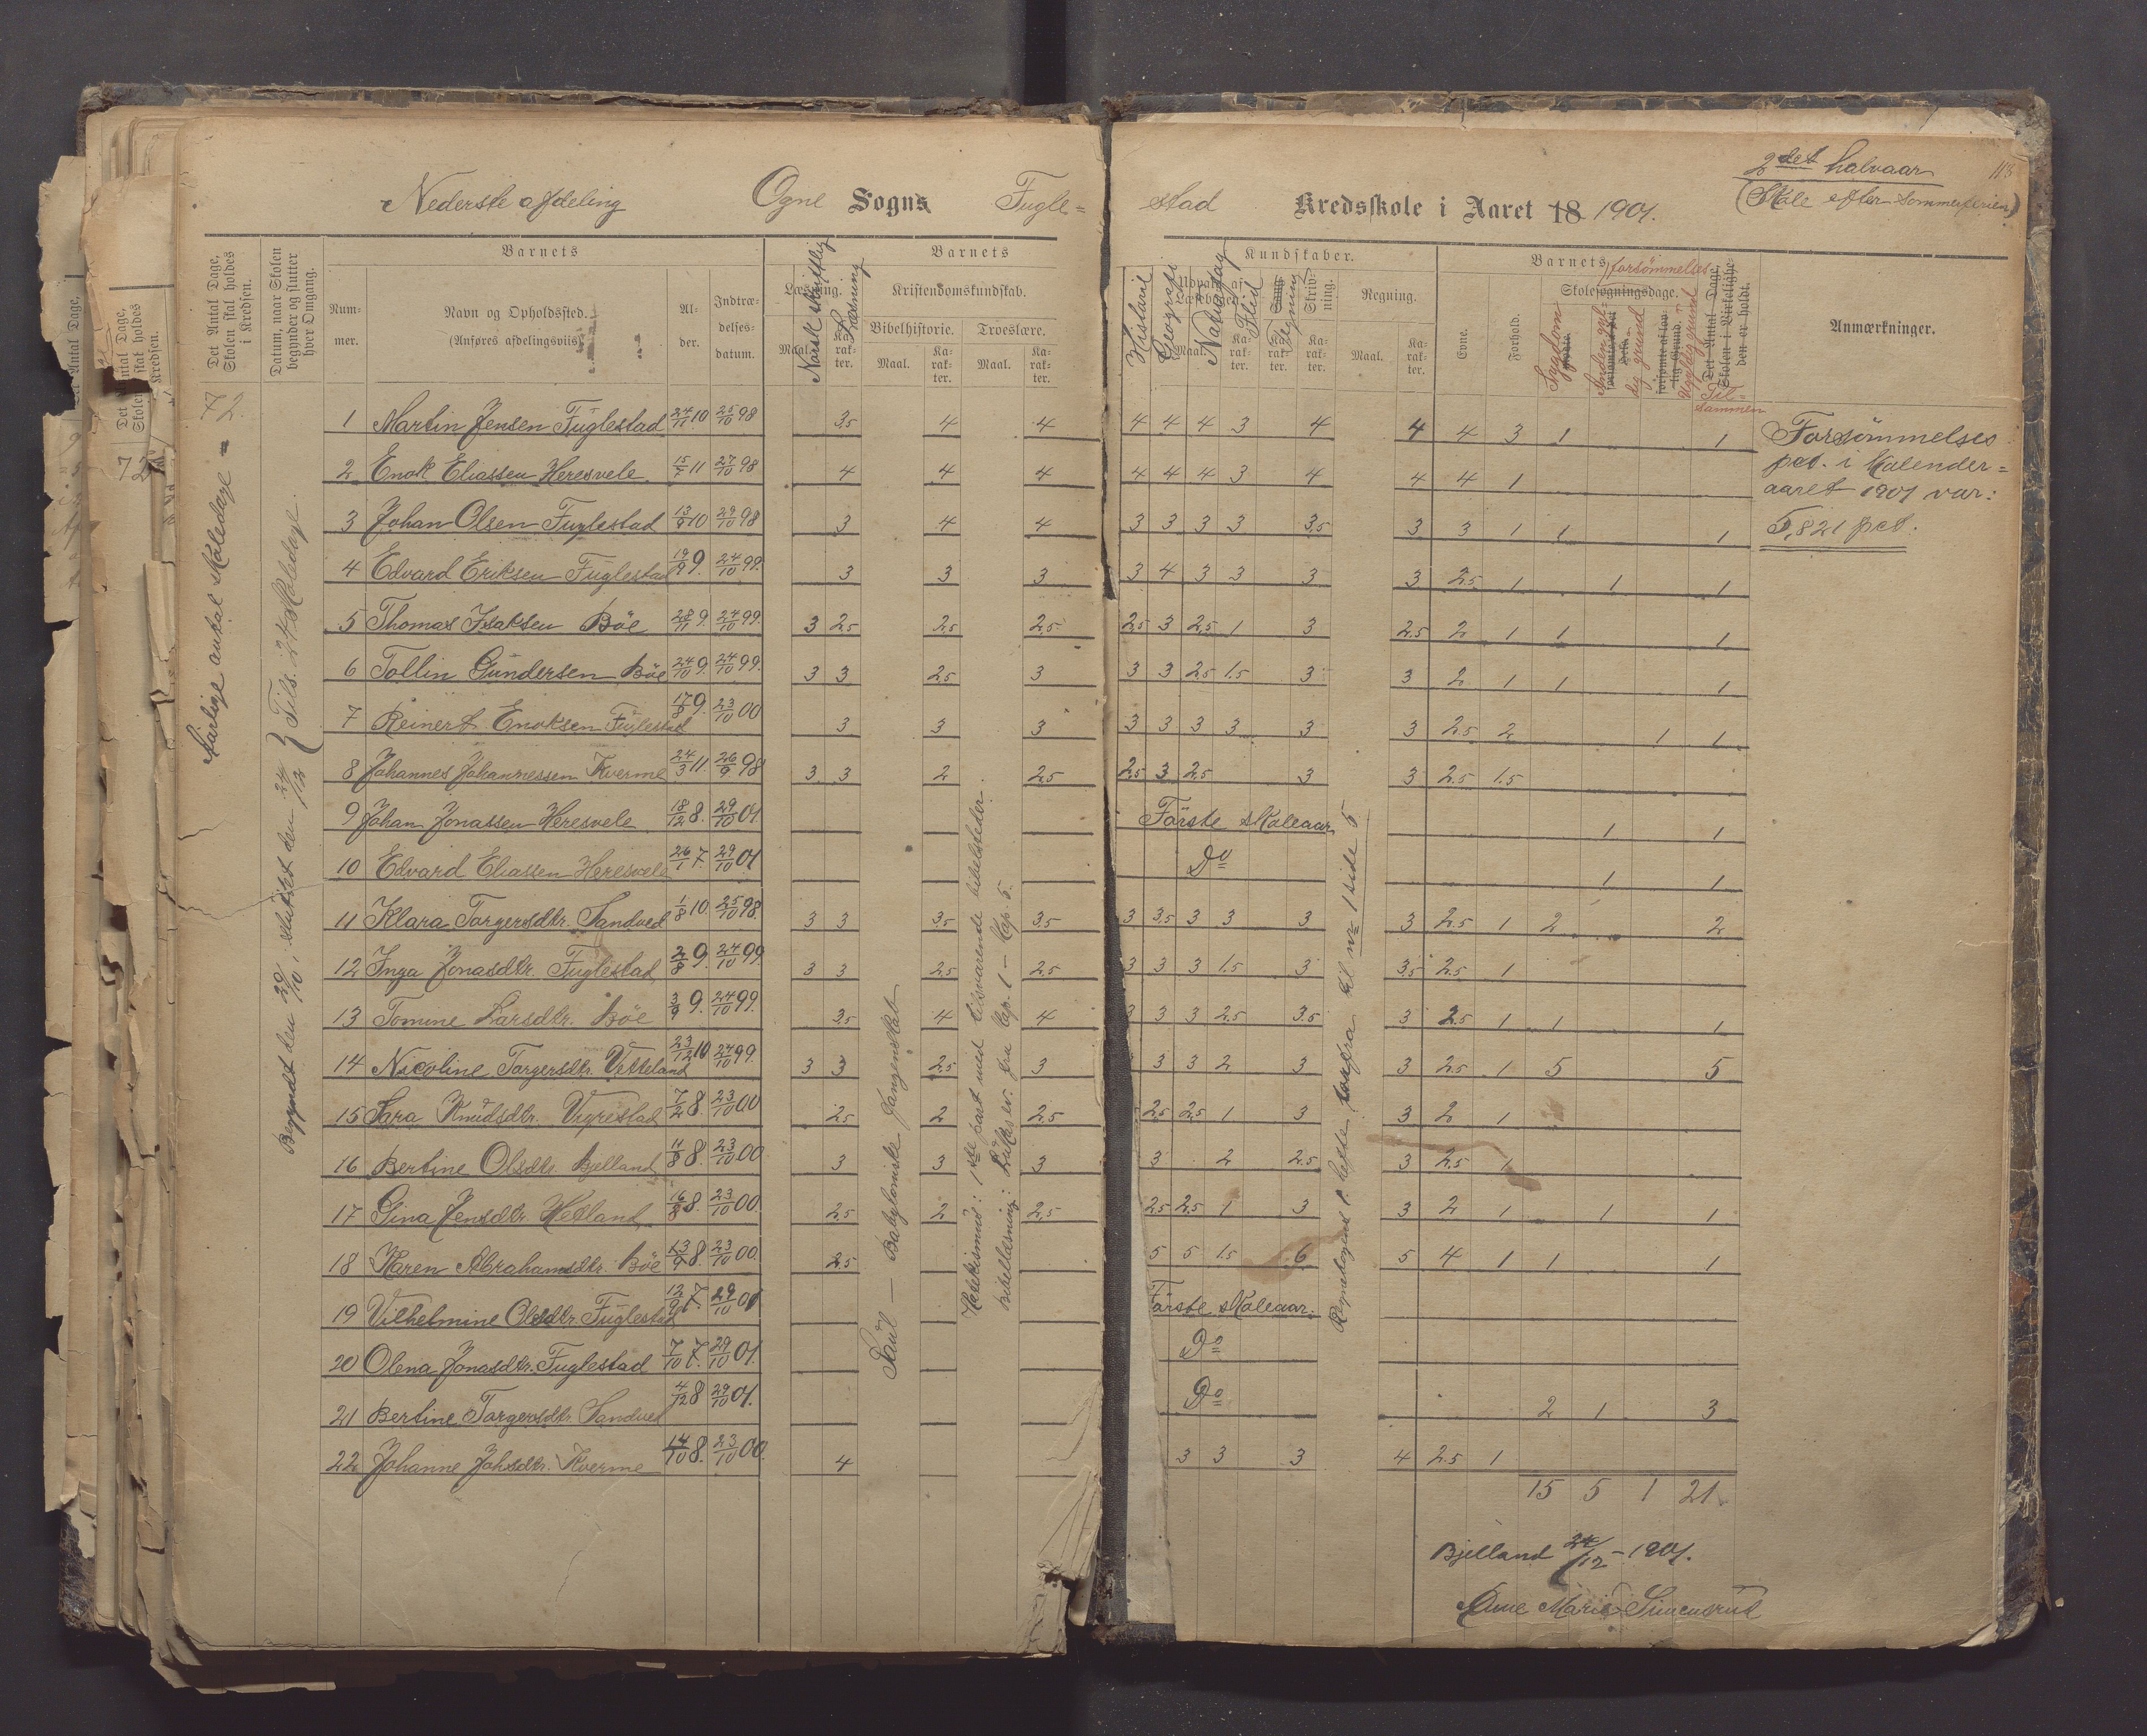 Nederste afdeling Ogne Sogns Fugle=
stad Kredsskole i Aaret 18 1901.
2det halvaar 113
(Skole efter sommerferien)
Det Antal Dage, Skolen skal holdes i Kredsen.
Datum, naar Skolen begynder og slutter hver Omgang.
Barnets
Nummer.
Navn og Opholdssted.
(Anføres afdelingsviis)
Alder.
Indtrædelsesdatum.
Barnets
Læsning.
Maal. Karakter.
Norsk skriftlig
Læsning
Kristendomskundskab.
Bibelhistorie. Troeslære.
Maal. Karakter. Maal. Karakter.
Kundskaber.
Historie
Geografi
Naturfag
Flid
Sang
Tegning
Skrivning.
Regning.
Maal. Karakter.
Barnets forsömmelses-
Evne.
Forhold.
Skolesøgningsdage.
Sygdom
Anden gyldig grund
Ugyldig grund
Det Antal Dage, Skolen i Virkeligheden er holdt.
Til=
sammen
Anmærkninger.
Aarlige antal skoledage = 72
Begyndt den 29/10, sluttet den 24/12 } Tils. 24 skoledage.
1 Martin Jensen Fuglestad 24/11 10 25/10 98 3,5 4 4 4 4 4 3 4 4 4 3 1 1
2 Enok Eliassen Heresvele 15/7 11 27/10 98 4 4 4 4 4 4 3 4 4 4 1
3 Johan Olsen Fuglestad 13/9 10 29/10 98 3 4 4 3 3 3 3 3,5 3 3 1 1 1
4 Edvard Eriksen Fuglestad 19/9 9. 24/10 99. 3 3 3 3 4 3 3 3 3 2,5 1 1 1
5 Thomas Isaksen Böe 28/11 9. 24/10 99. 3 2,5 2,5 2,5 2,5 3 2,5 1 3 2,5 2 1 1 1
6 Tollin Gundersen Böe 24/10 9. 24/10 99. 3 3 2,5 3 3 3 2,5 1,5 3 3 2 1 1 1
7 Reinert Enoksen Fuglestad 17/8 9. 23/10 00 3 3 3 3 3 3 3 3 3 2,5 2 1 1
8 Johannes Johannessen Kverme 24/3 11. 26/9 98 3 3 2 2,5 2,5 3 2,5 3 3 2,5 1,5
9 Johan Jonassen Heresvele 18/12 8. 29/10 01 Förste skoleaar 1 1
10 Edvard Eliassen Heresvele 26/1 7. 29/10 01 Do 1 1
11 Klara Torgersdtr. Sandved 1/8 10. 25/10 98. 3 3 3,5 3,5 3 3,5 3 3 3 3 2,5 1 2 2
12 Inga Jonasdtr. Fuglestad 2/8 9. 24/10 99. 3 3 2,5 2,5 3 3 3 1,5 3 3,5 2,5 1
13 Tomine Larsdtr. Böe 3/9 9. 24/10 99. 3,5 4 4 3 3 3 2,5 3,5 3 2,5 1 1 1
14 Nicoline Torgersdtr. Vetteland 23/12 10 24/10 99. 3 3 2,5 3 3 3 2 3 3 2,5 1 5 5
15 Sara Knudsdtr. Vigrestad 7/2 8 23/10 00 2,5 2 2,5 2,5 2,5 1 3 3 2 1
16 Bertine Olsdtr. Bjelland 11/8 8. 23/10 00 3 3 3 3 2 2,5 3 2,5 1
17 Gina Jensdtr. Hetland 16/8 8. 23/10 00. 2,5 2 2,5 2,5 2,5 1 3 3 2 1 1 1
18 Karen Abrahamsdtr. Böe 13/9 8. 23/10 00. 2,5 5 5 1,5 6 5 4 1 1 1
19 Vilhelmine Olsdtr. Fuglestad 12/9 7. 29/10 01 Förste skoleaar.
20 Olena Jonasdtr. Fuglestad 7/10 7. 29/10 01. Do
21 Bertine Torgersdtr. Sandved 4/12 8 29/10 01. Do 2 1 3
22 Johanne Johsdtr. Kverme 14/10 8. 23/10 00. 4 3 3 3 4 2,5 1
15 5 1 21
Saul — Babyloniske fangenskab
Katekismus: 1ste part med tilsvarende bibelsteder.
Bibellæsning: Lukas ev. fra Cap. 1 – Kap. 5.
Regnebogens 1. hefte fra til nr 1 side 5
Forsömmelses
pct. i Kalender=
aaret 1901 var:
5,821 pct.
Bjelland 24/12 – 1901.
Anne Marie Simensrud